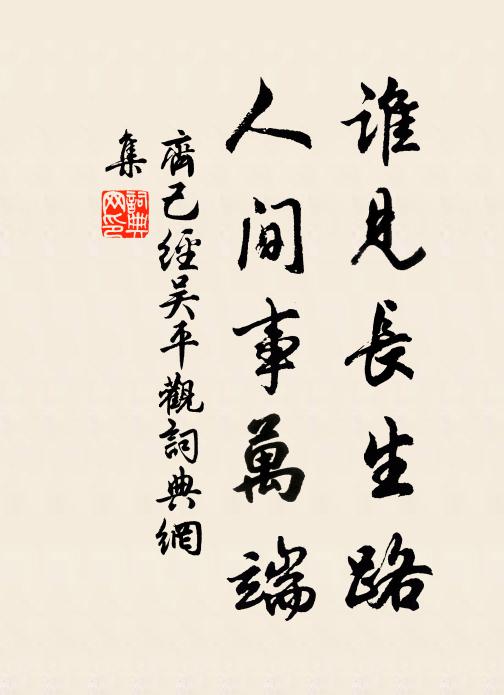 誰見長生路
人間事萬端
齊己經吳平觀詞典網
集
詞典網印